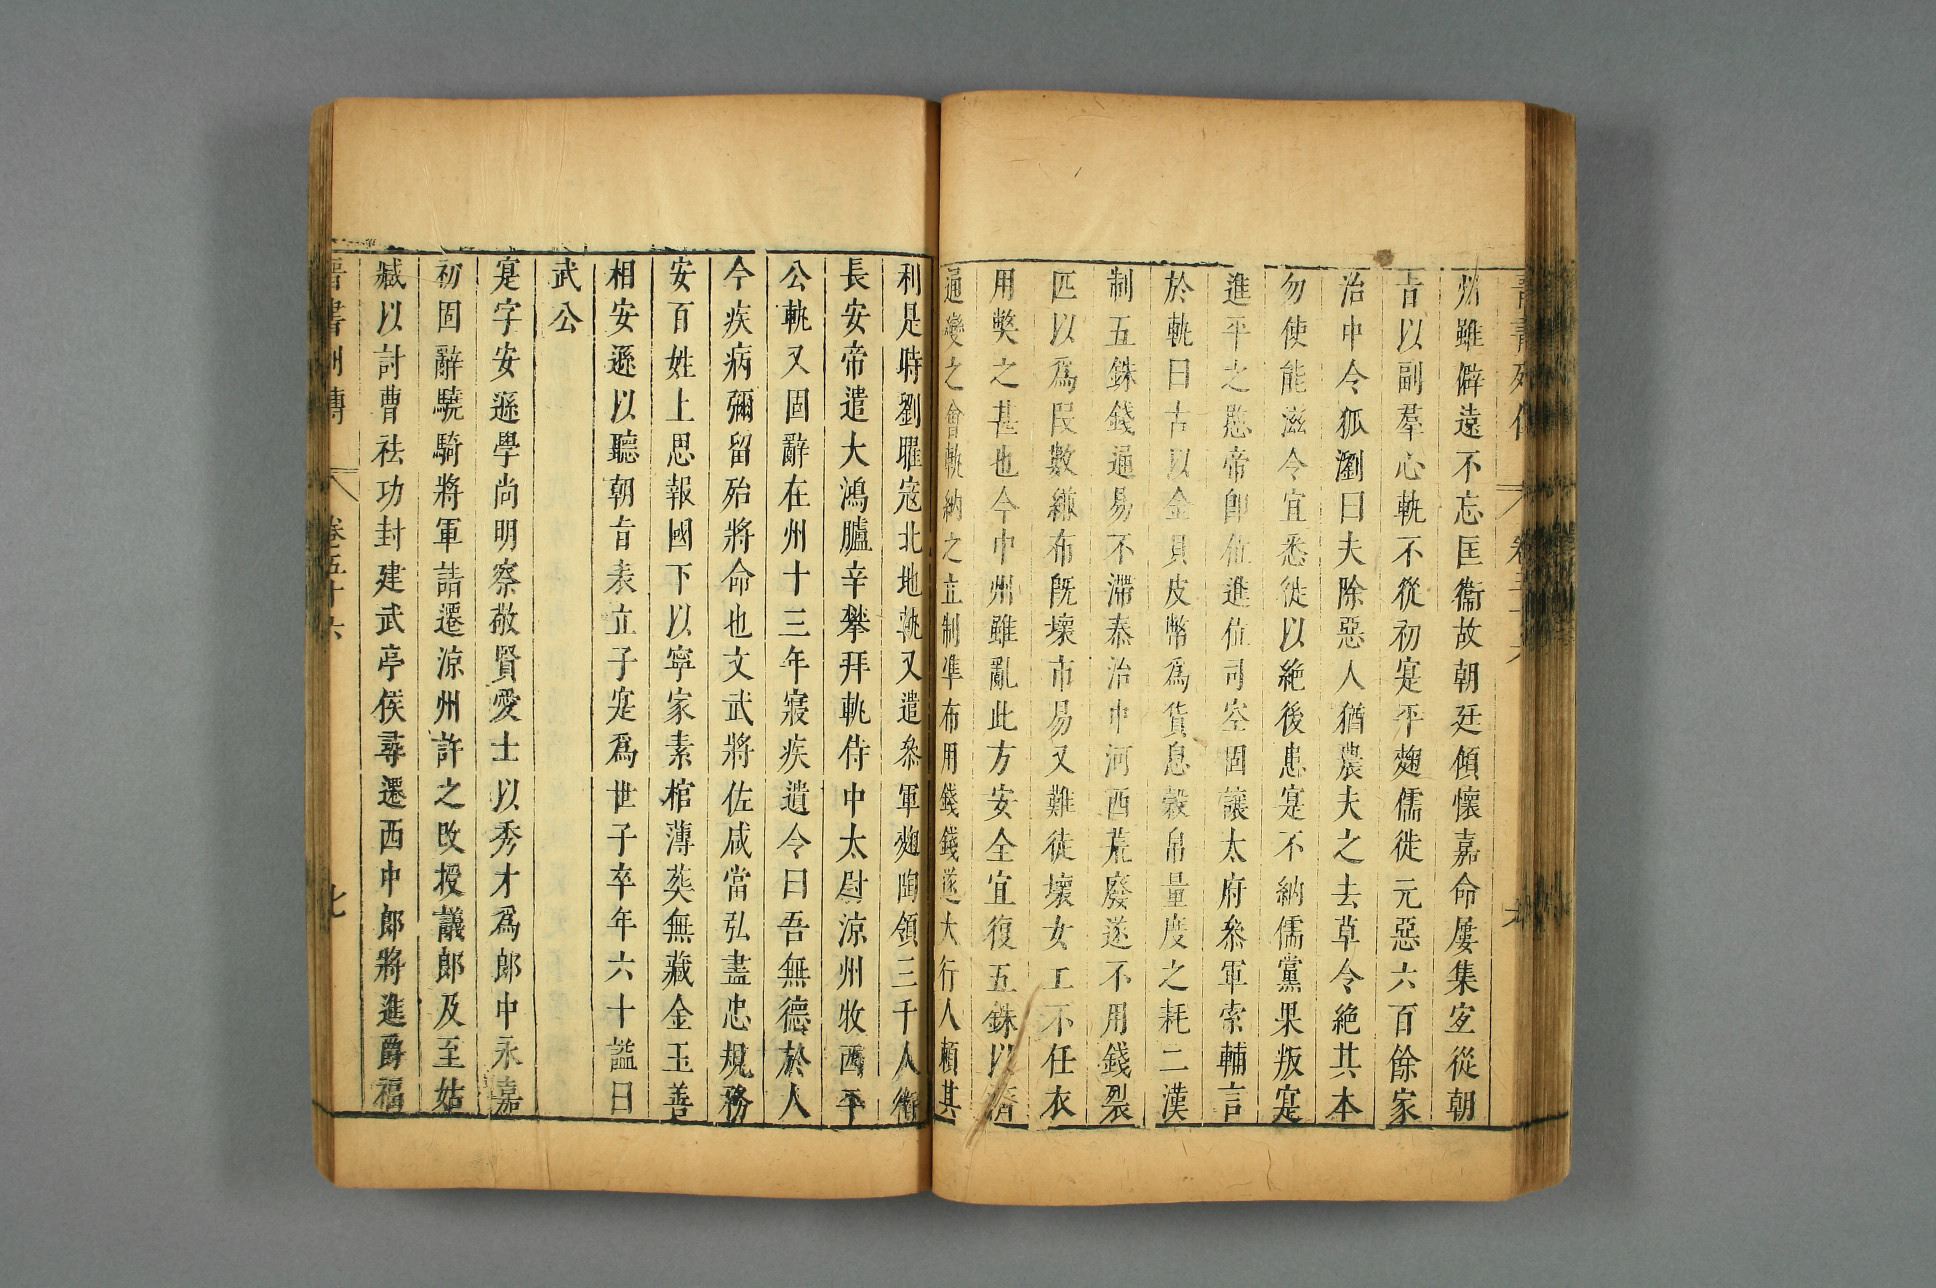 晉書列傳 卷五十六 六
州雖僻遠不忘匡衞故朝廷傾懷嘉命屢集宜從朝
旨以副羣心軌不從初寔平麹儒徙元惡六百餘家
治中令狐瀏曰夫除惡人猶農夫之去草令絶其本
勿使能滋今宜悉徙以絶後患寔不納儒黨果叛寔
進平之愍帝卽位進位司空固讓太府叅軍索輔言
於軌曰古以金貝皮幣爲貨息穀帛量度之耗二漢
制五銖錢通易不滯泰治中河西荒廢遂不用錢裂
匹以爲叚數縑布旣壞市易又難徒壞女工不任衣
用獘之甚也今中州雖亂此方安全宜復五銖以濟
通變之會軌納之立制凖布用錢錢遂大行人賴其
利是時劉曜寇北地軌又遣叅軍麹陶領三千人衞
長安帝遣大鴻臚辛攀拜軌侍中太尉涼州牧西平
公軌又固辭在州十三年寢疾遺令曰吾無德於人
今疾病彌留殆將命也文武將佐咸當弘盡忠規務
安百姓上思報國下以寧家素棺薄葬無藏金玉善
相安遜以聽朝旨表立子寔爲世子卒年六十謚曰
武公
寔字安遜學尚明察敬賢愛士以秀才爲郎中永嘉
初固辭驍騎將軍請還涼州許之改授議郎及至姑
臧以討曹祛功封建武亭侯尋遷西中郎將進爵福
晉書列傳 卷五十六 七